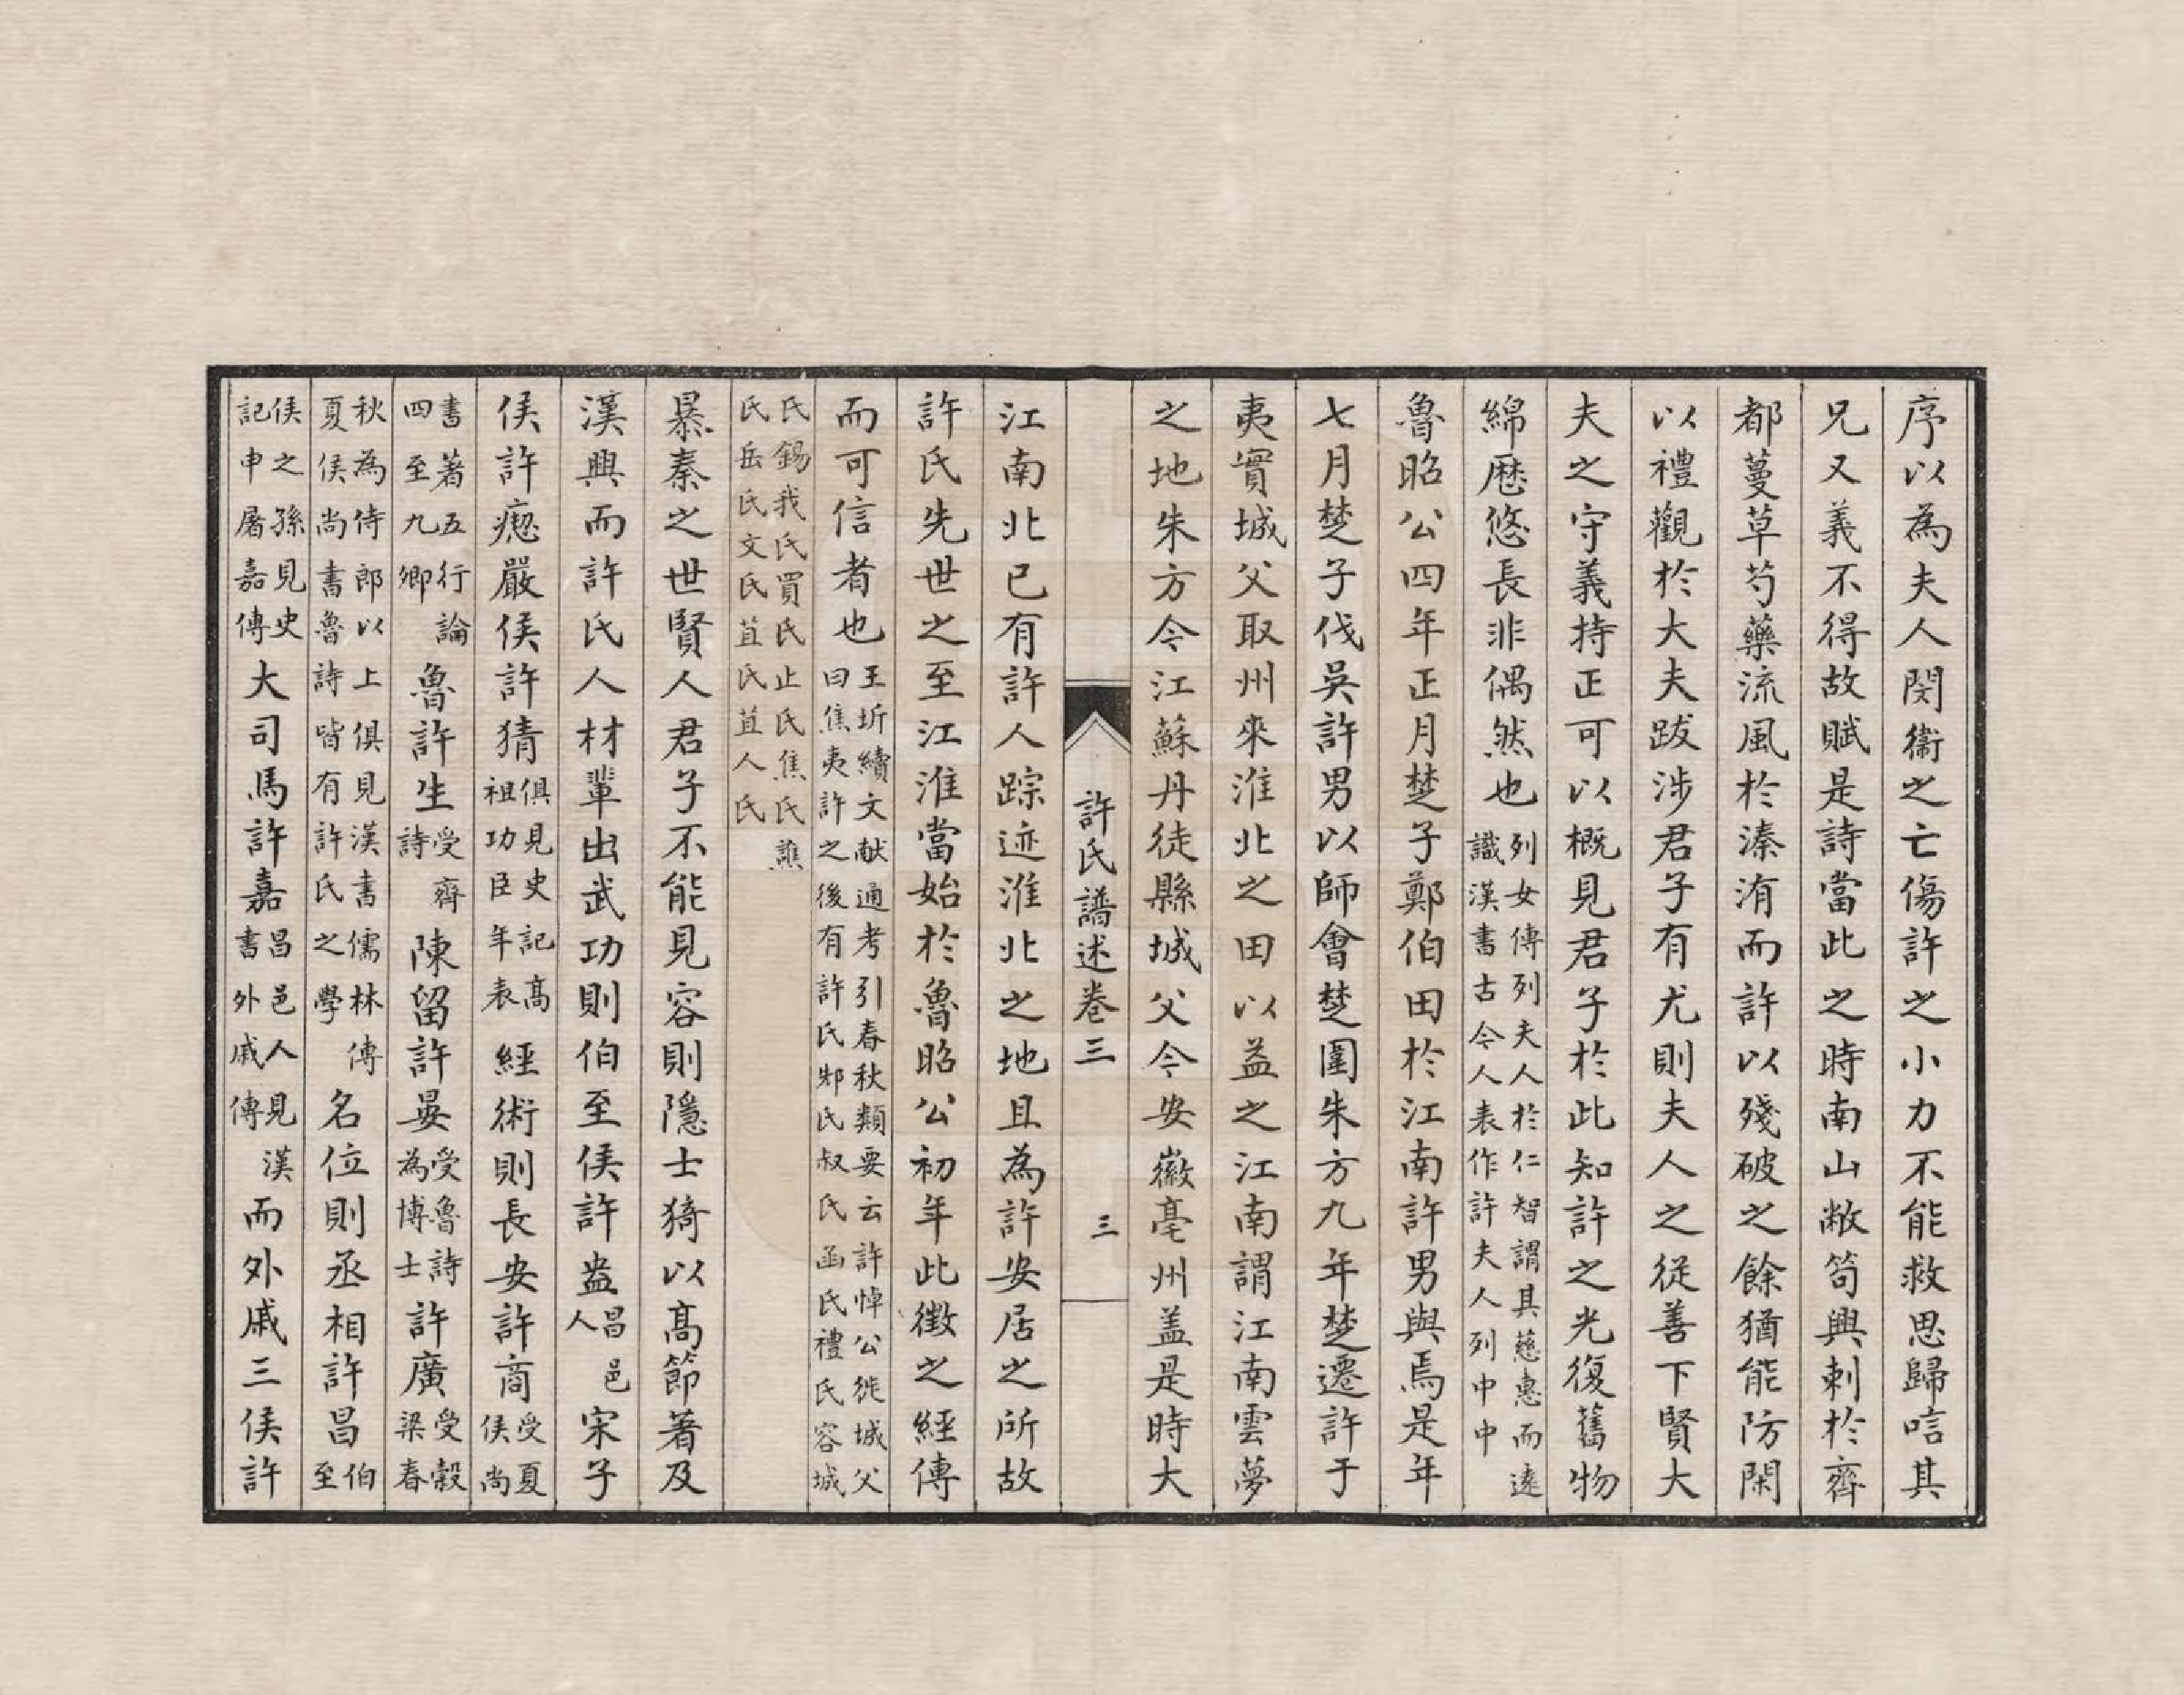 序以為夫人閔衞之亡傷許之小力不能救思歸唁其
兄又義不得故賦是詩當此之時南山敝笱興刺於齊
都蔓草芍藥流風於溱洧而許以殘破之餘猶能防閑
以禮觀於大夫跋涉君子有尤則夫人之從善下賢大
夫之守義持正可以概見君子於此知許之光復舊物
綿歷悠長非偶然也列女傳列夫人於仁智謂其慈惠而遠識漢書古今人表作許夫人列中中
魯昭公四年正月楚子鄭伯田於江南許男與焉是年
七月楚子伐吳許男以師會楚圍朱方九年楚遷許于
夷實城父取州來淮北之田以益之江南謂江南雲夢
之地朱方今江蘇丹徒縣城父今安徽亳州盖是時大
許氏譜述卷三 三
江南北已有許人踪迹淮北之地且為許安居之所故
許氏先世之至江淮當始於魯昭公初年此徵之經傳
而可信者也王圻續文献通考引春秋類要云許悼公徙城父曰焦夷許之後有許氏邾氏叔氏函氏禮氏容城
氏錫我氏買氏止氏焦氏譙氏岳氏文氏苴氏苴人氏
暴秦之世賢人君子不能見容則隱士猗以高節著及
漢興而許氏人材輩出武功則伯至侯許盎昌邑人宋子
侯許瘛嚴侯許猜俱見史記高祖功臣年表經術則長安許商受夏侯尚
書著五行論四至九卿魯許生受齊詩陳留許晏受魯詩為博士許廣受穀梁春
秋為侍郎以上俱見漢書儒林傳夏侯尚書魯詩皆有許氏之學名位則丞相許昌伯至
侯之孫見史記申屠嘉傳大司馬許嘉昌邑人見漢書外戚傳而外戚三侯許